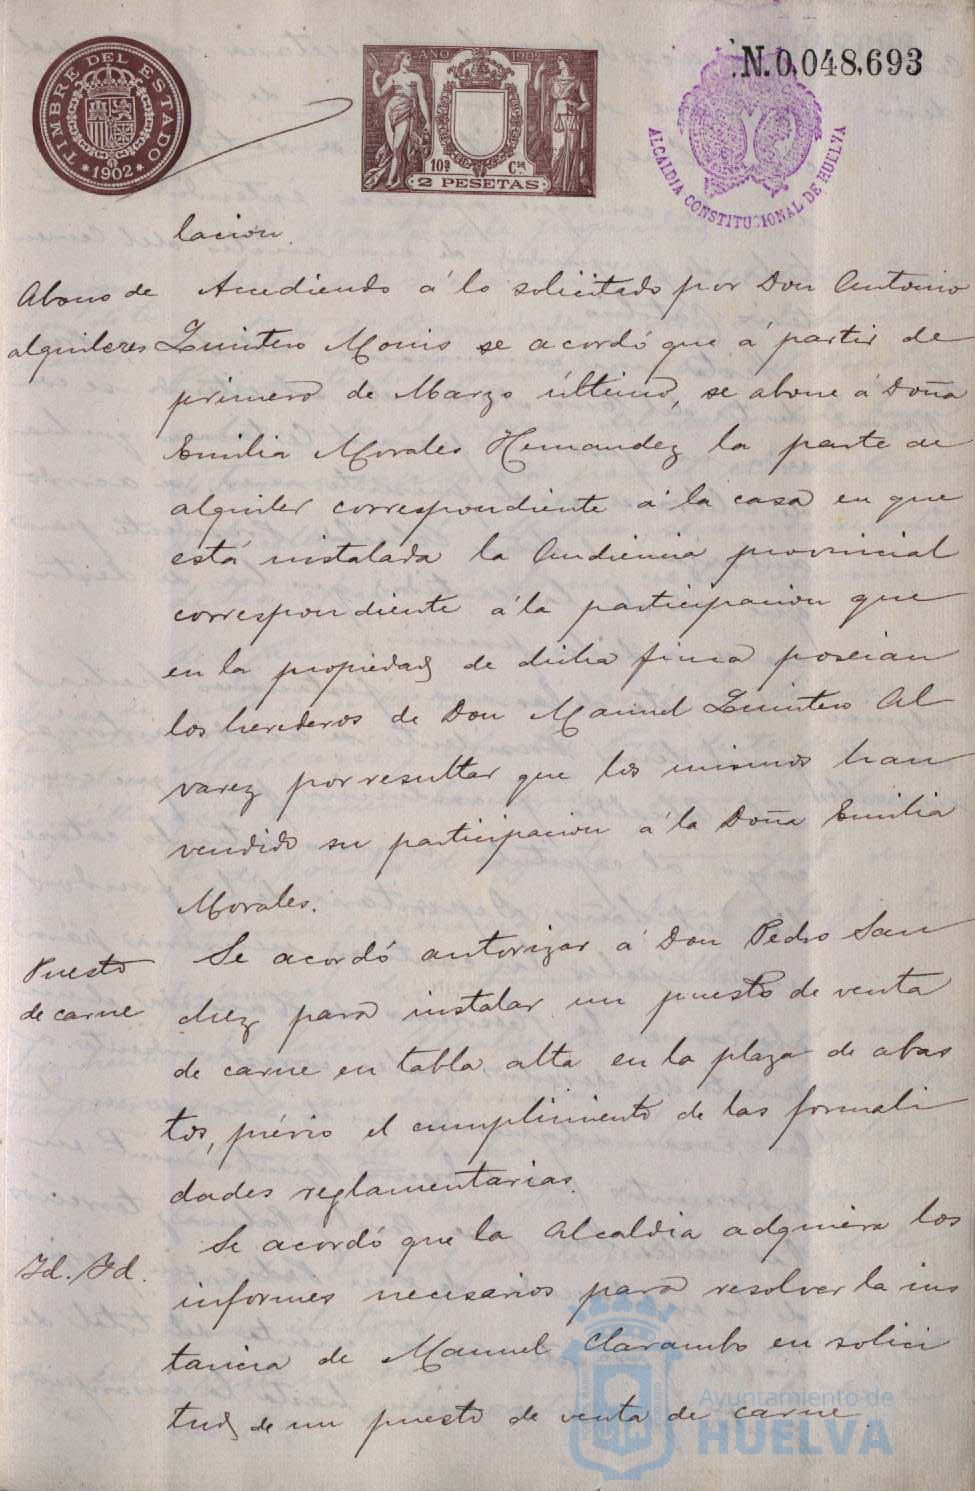 TIMBRE DEL ESTADO
*1902*
AÑO 1902
10ª Cse
2 PESETAS
N.0,048,693
ALCALDIA CONSTITUCIONAL DE HUELVA
lacion.
Abono de
alquileres
Accediendo á lo solicitado por Don Antonio
Quintero Monis se acordó que á partir de
primero de Marzo último, se abone á Doña
Emilia Morales Hernandez la parte de
alquiler correspondiente á la casa en que
está instalada la Audiencia provincial
correspondiente á la participacion que
en la propiedad de dicha finca poseian
los herederos de Don Manuel Quintero Al
varez por resultar que los mismos han
vendido su participacion á la Doña Emilia
Morales.
Puesto
de carne
Se acordó autorizar á Don Pedro San
chez para instalar un puesto de venta
de carne en tabla alta en la plaza de abas
tos, prévio el cumplimiento de las formali
dades reglamentarias.
Id. Id.
Se acordó que la Alcaldia adquiera los
informes necesarios para resolver la ins
tancia de Manuel Clarambo en solici
tud de un puesto de venta de carne
Ayuntamiento de
HUELVA